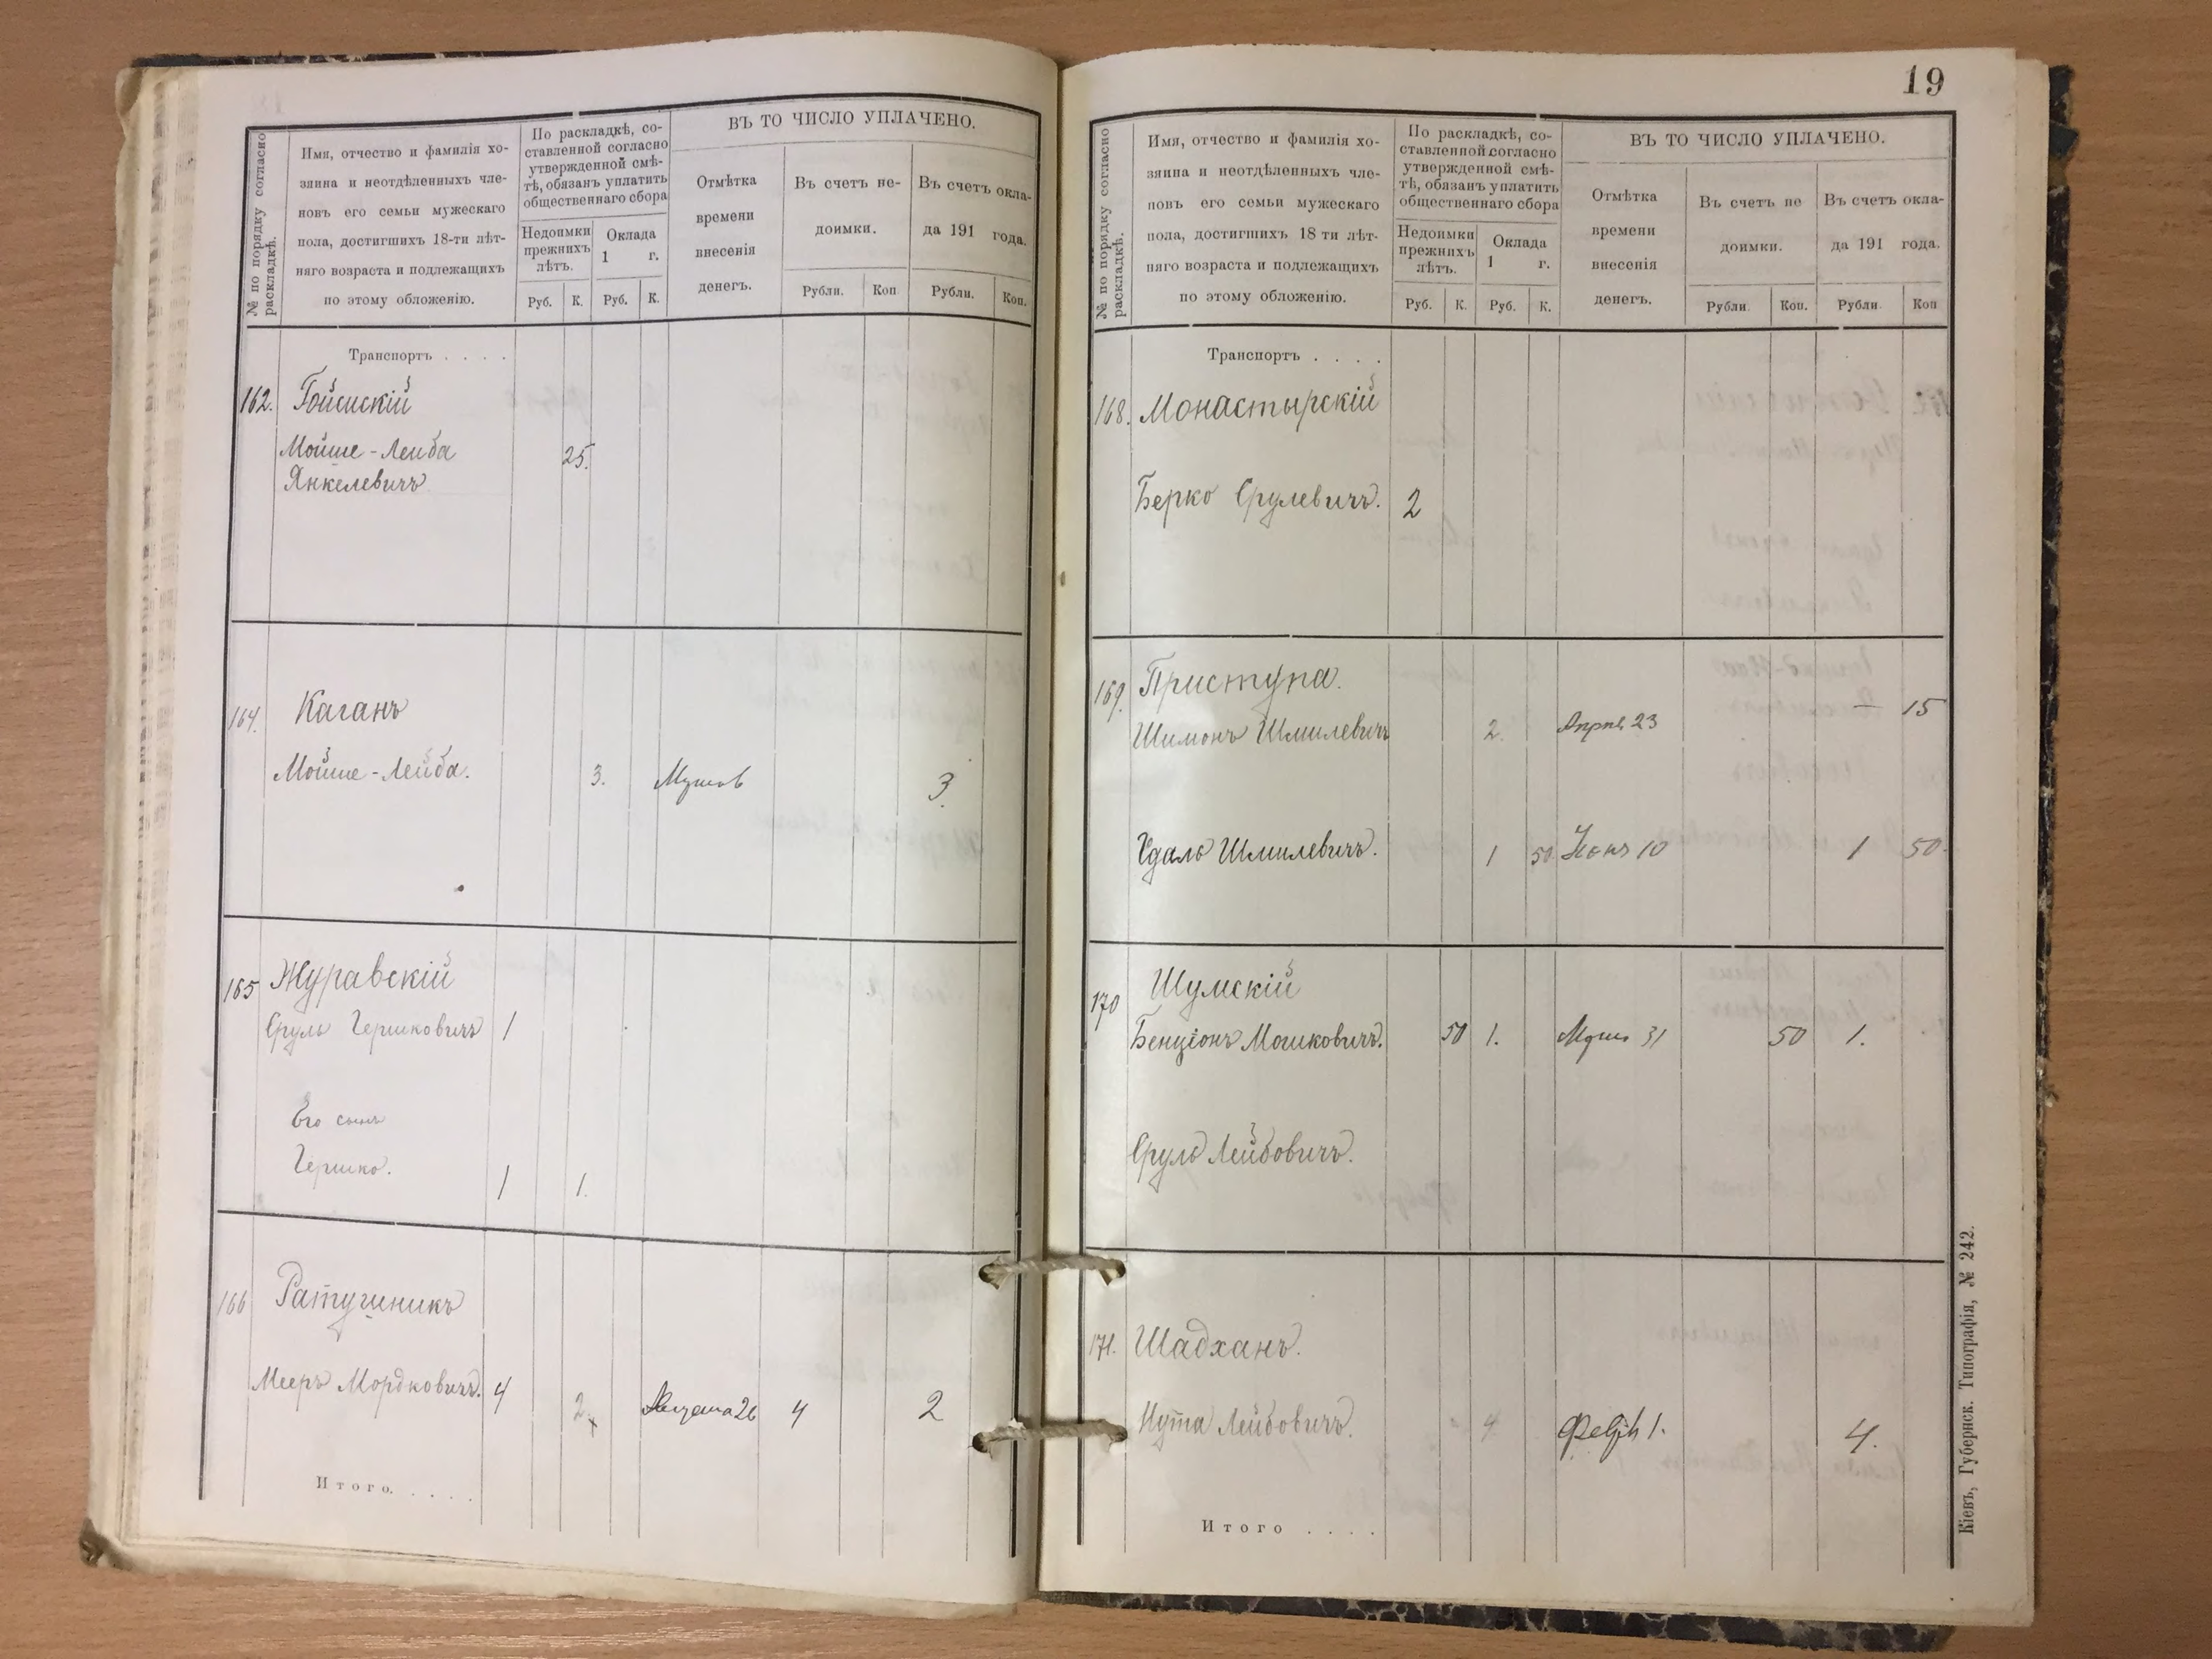 № по порядку согласно
раскладкѣ.
Имя, отчество и фамилія хо-
зяина и неотдѣленныхъ чле-
новъ его семьи мужескаго
пола, достигшихъ 18-ти лѣт-
няго возраста и подлежащихъ
по этому обложенію.
По раскладкѣ, со-
ставленной согласно
утвержденной смѣ-
тѣ, обязанъ уплатить
общественнаго сбора
Недоимки
прежнихъ
лѣтъ.
Оклада
1 г.
Руб. К. Руб. К.
ВЪ ТО ЧИСЛО УПЛАЧЕНО.
Отмѣтка
времени
внесенія
денегъ.
Въ счетъ не-
доимки.
Въ счетъ окла-
да 191 года.
Рубли. Коп Рубли. Коп.
Транспортъ . . . .
162. Гойсискій
Мойше-Лейба 25.
Янкелевичъ
164. Каганъ
Мойше-Лейба. 3. 3.
165 Журавскій
Сруль Гершковичъ 1
Его сынъ
Гершко. 1 1.
166 Ратушникъ
Мееръ Мордковичъ. 4 2 Августа 26 4 2
Итого. . . . .
19
№ по порядку согласно
раскладкѣ.
Имя, отчество и фамилія хо-
зяина и неотдѣленныхъ чле-
новъ его семьи мужескаго
пола, достигшихъ 18 ти лѣт-
няго возраста и подлежащихъ
по этому обложенію.
По раскладкѣ, со-
ставленной согласно
утвержденной смѣ-
тѣ, обязанъ уплатить
общественнаго сбора
Недоимки
прежнихъ
лѣтъ.
Оклада
1 г.
Руб. К. Руб. К.
ВЪ ТО ЧИСЛО УПЛАЧЕНО.
Отмѣтка
времени
внесенія
денегъ.
Въ счетъ не
доимки.
Въ счетъ окла-
да 191 года.
Рубли. Коп. Рубли. Коп
Транспортъ . . . .
168. Монастырскій
Берко Срулевичъ. 2
169. Приступа.
Шимонъ Шмилевичъ 2. 23 — 15
Удаль Шмилевичъ. 1 50. 10 1 50.
170 Шумскій
Бенціонъ Мошковичъ. 50 1. 31 50 1.
Сруль Лейбовичъ.
171. Шадханъ.
Нута Лейбовичъ. 4 1. 4.
Итого . . . .
Кіевъ, Губернск. Типографія, № 242.